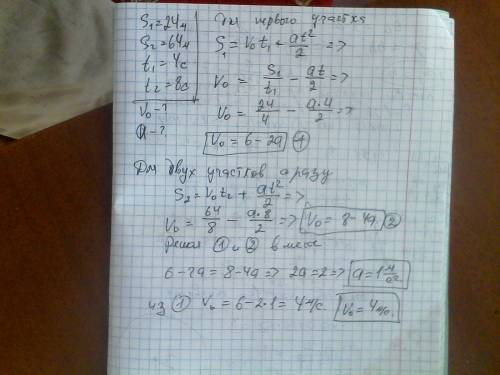 S₁ = 24м
S₂ = 64м
t₁ = 4с
t₂ = 8с
V₀ - ?
a - ?
Для первого участка
S₁ = V₀t₁ + at²/2 =>
V₀ = S₁/t₁ - at/2 =>
V₀ = 24/4 - a·4/2 =>
V₀ = 6 - 2a ①
Для двух участков сразу
S₂ = V₀t₂ + at²/2 =>
V₀ = 64/8 - a·8/2 => V₀ = 8 - 4a ②
Решая ① и ② вместе
6 - 2a = 8 - 4a => 2a = 2 => a = 1 м/с²
из ① V₀ = 6 - 2·1 = 4м/с. V₀ = 4м/с.